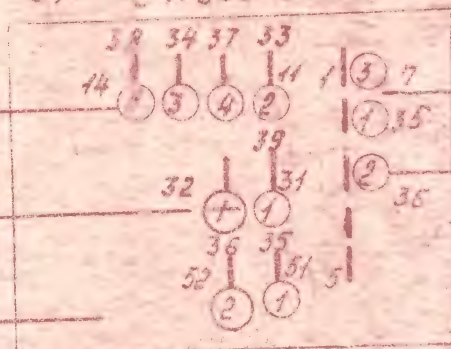 34 37 33
14 3 4 2 11 1 3 7
1 35
39
32 1 31 2
36 35
52 51 5
2 1